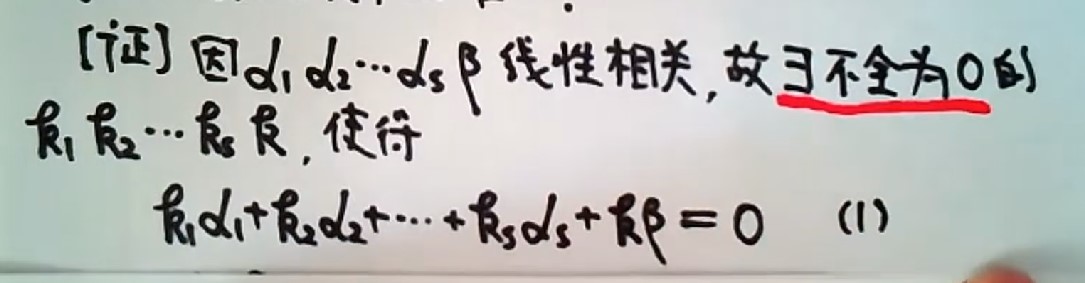 [证] 因α₁ α₂ ⋯ αₛ β 线性相关, 故∃不全为0的
k₁ k₂ ⋯ kₛ k, 使得
k₁α₁+k₂α₂+⋯+kₛαₛ+kβ=0 (1)